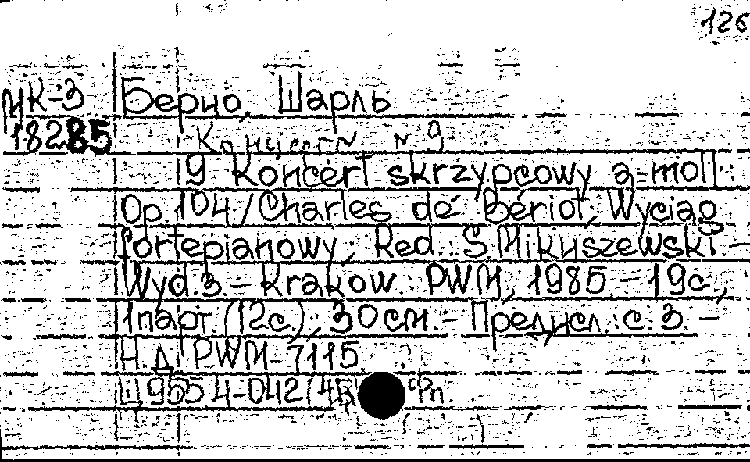 126
МК-3 Берио, Шарль
18285 Концерт N 9
9 Koncert skrzypcowy a-moll:
Op. 104 / Charles de Bériot; Wyciąg
fortepianowy; Red. S. Mikuszewski. –
Wyd. 3. – Krakow: PWM, 1985 – 19с.,
1парт. (12с.); 30см. – Предисл.: с. 3. –
Н.д. PWM-7115
Ц9554-042(4